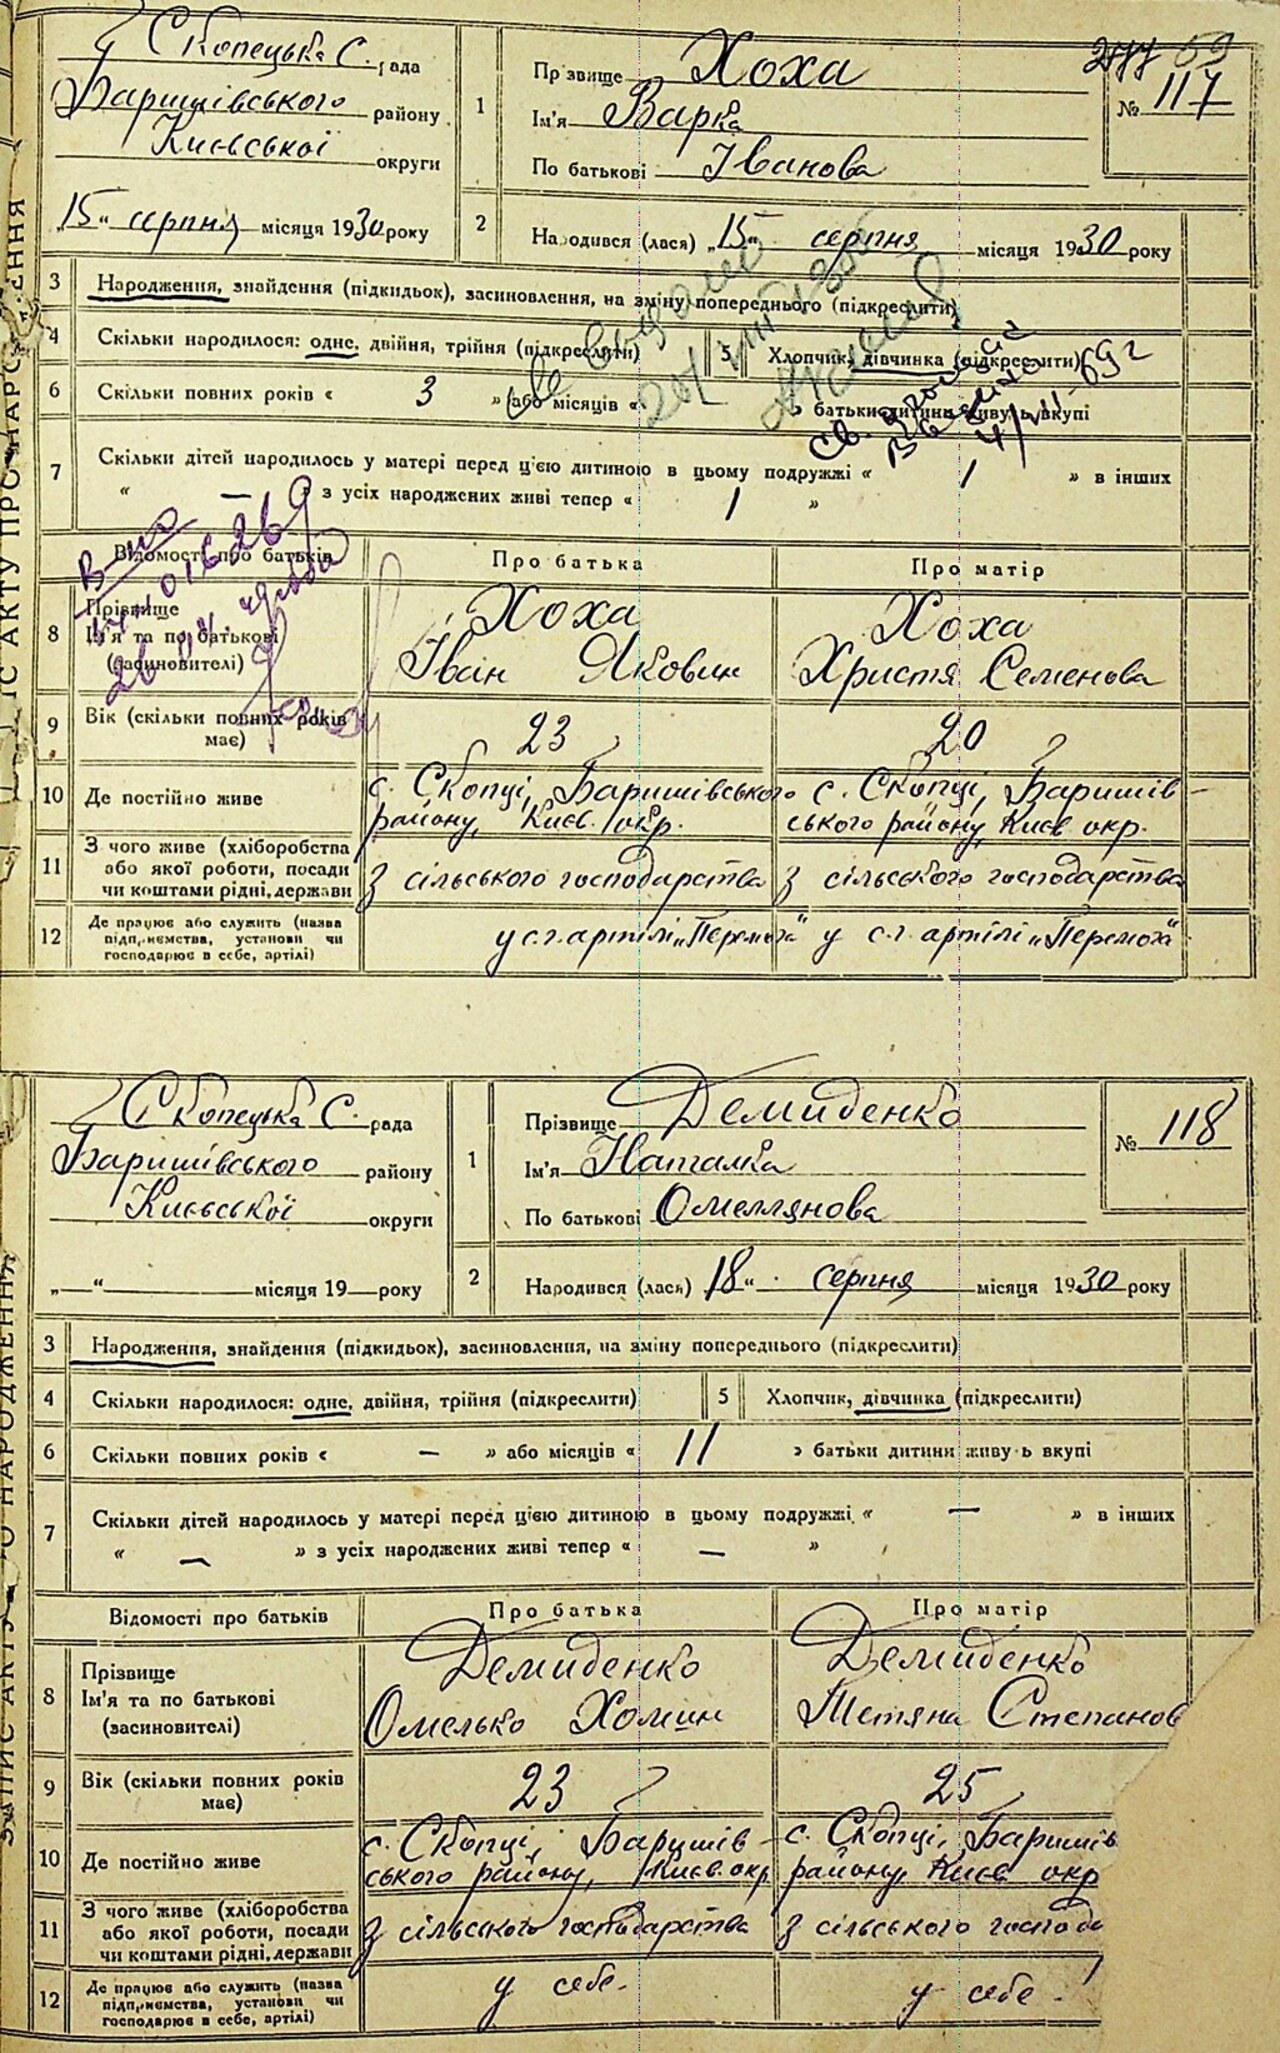 Скопецька С. рада
Баришівського району
Києвської округи
„15“ серпня місяця 1930 року
1
Прізвище Хоха
Ім'я Варка
По батькові Іванова
277 59
№ 117
2
Народився (лася) „15“ серпня місяця 1930 року
3 Народження, знайдення (підкидьок), засиновлення, на зміну попереднього (підкреслити)
4 Скільки народилося: одне, двійня, трійня (підкреслити) 5 Хлопчик, дівчинка (підкреслити)
6 Скільки повних років « 3 » або місяців « » батьки дитини живуть вкупі
7 Скільки дітей народилось у матері перед цією дитиною в цьому подружжі « 1 » в інших
« — » з усіх народжених живі тепер « 1 »
Відомості про батьків Про батька Про матір
8 Прізвище Ім'я та по батькові (засиновителі)
Хоха Хоха
Іван Яковин Христя Семенова
9 Вік (скільки повних років має) 23 20
10 Де постійно живе
с. Скопці, Баришівського с. Скопці, Баришів-
району, Києв. окр. ського району, Києв окр.
11 З чого живе (хліборобства або якої роботи, посади чи коштами рідні, держави
З сільського господарства З сільського господарства
12 Де працює або служить (назва підприємства, установи чи господарює в себе, артілі)
у с.г. артілі „Перемога“ у с.г. артілі „Перемога“
Скопецька С. рада
Баришівського району
Києвської округи
„—“ місяця 19— року
1
Прізвище Демиденко
Ім'я Наталка
По батькові Омеллянова
№ 118
2
Народився (лася) 18“ серпня місяця 1930 року
3 Народження, знайдення (підкидьок), засиновлення, на зміну попереднього (підкреслити)
4 Скільки народилося: одне, двійня, трійня (підкреслити) 5 Хлопчик, дівчинка (підкреслити)
6 Скільки повних років « — » або місяців « 11 » батьки дитини живуть вкупі
7 Скільки дітей народилось у матері перед цією дитиною в цьому подружжі « — » в інших
« — » з усіх народжених живі тепер « — »
Відомості про батьків Про батька Про матір
8 Прізвище Ім'я та по батькові (засиновителі)
Демиденко Демиденко
Омелько Хомин Тетяна Степанов
9 Вік (скільки повних років має) 23 25
10 Де постійно живе
с. Скопці, Баришів- с. Скопці, Баришів
ського району, Києв. окр району, Києв окр
11 З чого живе (хліборобства або якої роботи, посади чи коштами рідні, держави
З сільського господарства З сільського господа
12 Де працює або служить (назва підприємства, установи чи господарює в себе, артілі)
у себе. у себе.